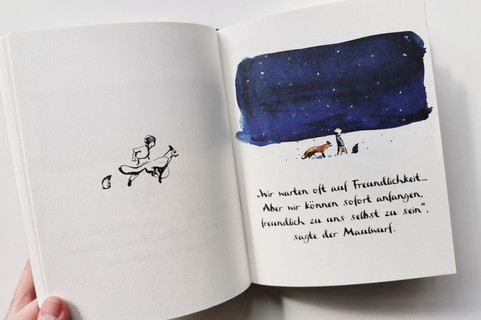 „Wir warten oft auf Freundlichkeit...
Aber wir können sofort anfangen,
freundlich zu uns selbst zu sein“,
sagte der Maulwurf.